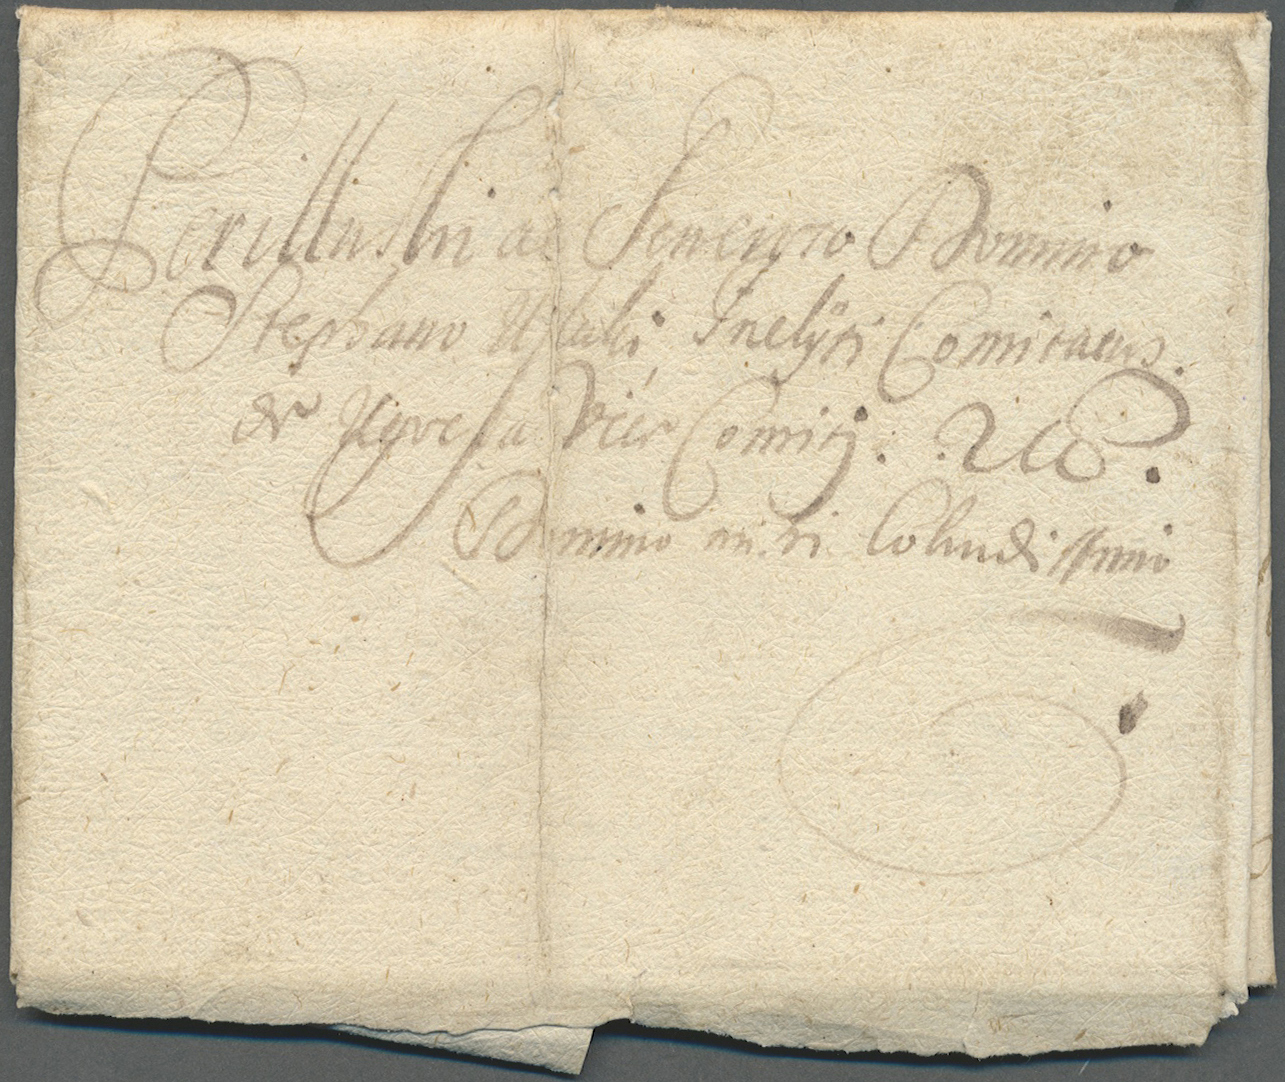 Perillustri ac Generoso Domino
Stephano Inclyti Comitatus
de Ugocsa Vice Comiti:
Domino mihi Colendissimo